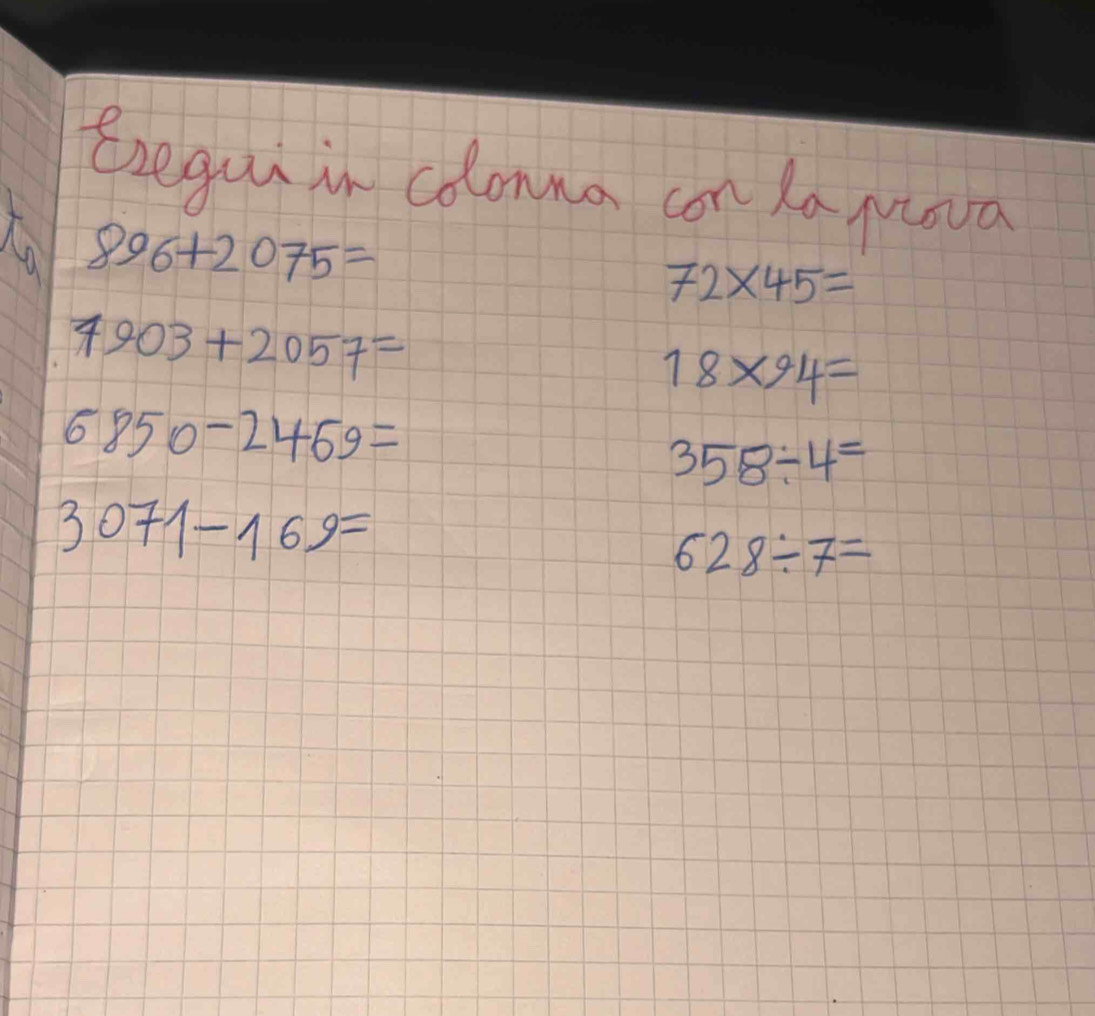 Esegui in colonna con la prova
ta
896+2075=
7903+2057=
6850-2469=
3071-169=
72×45=
18×94=
358÷4=
628÷7=